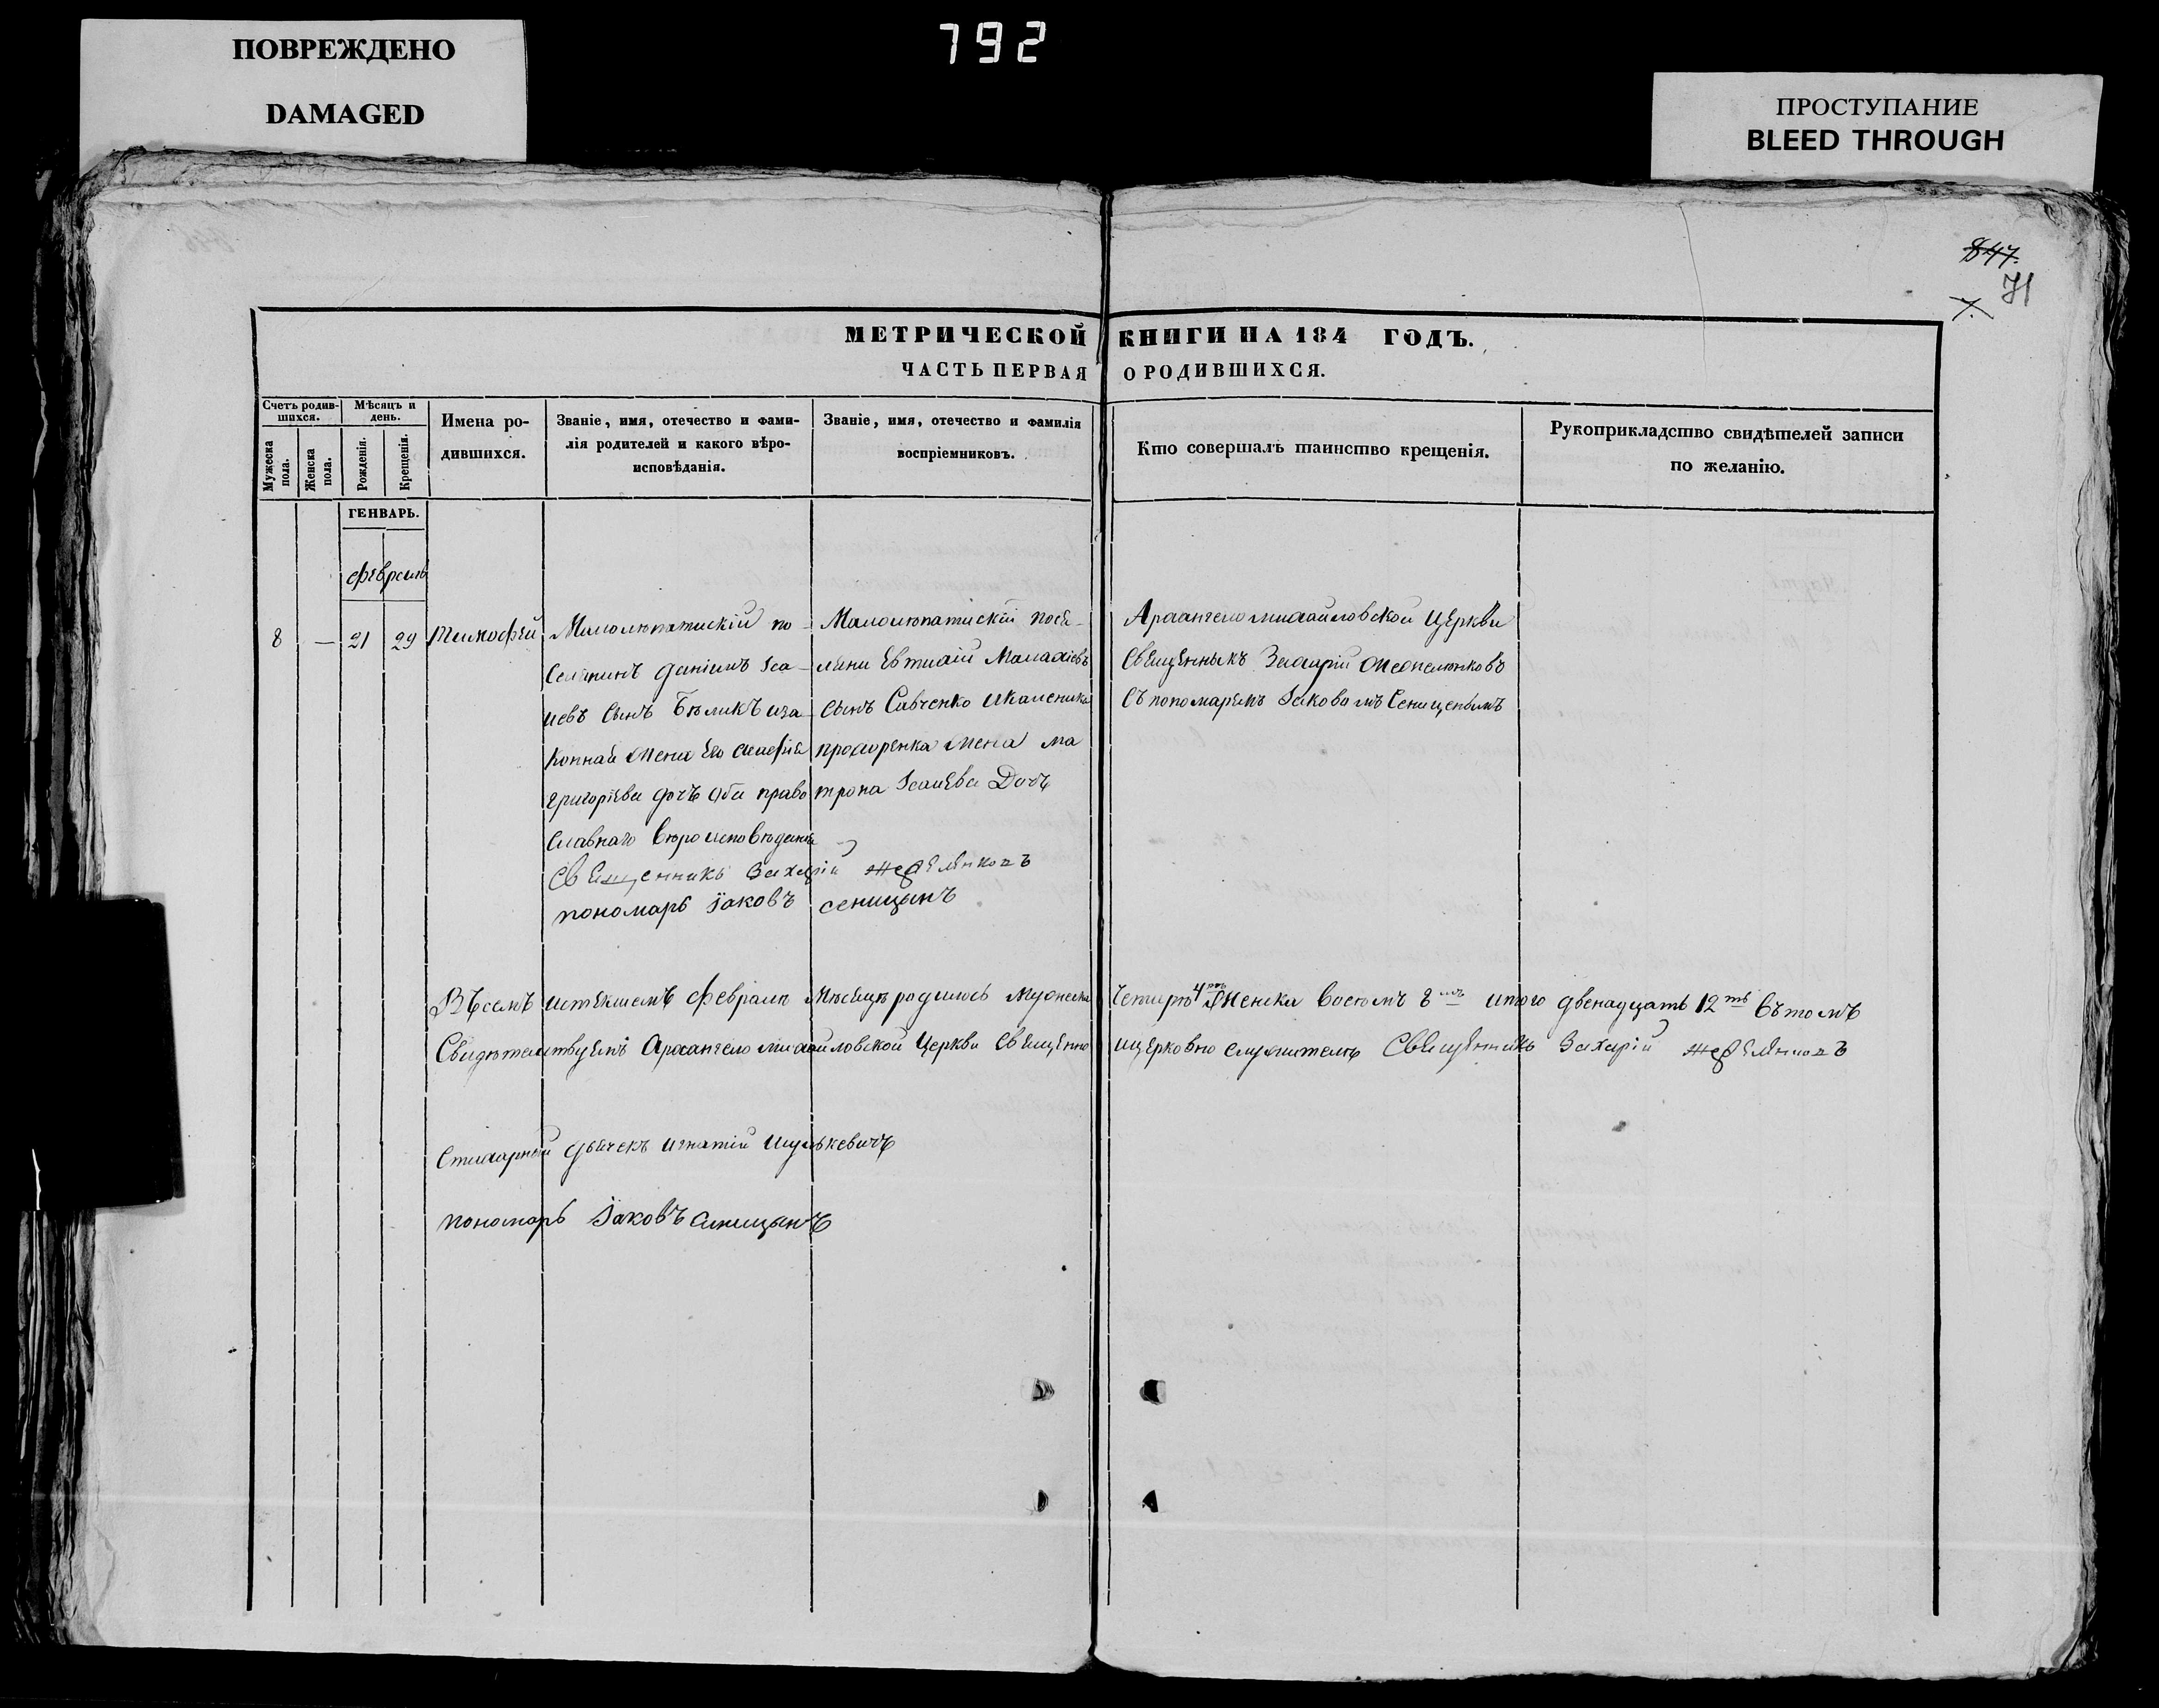 ПОВРЕЖДЕНО
DAMAGED
792
ПРОСТУПАНИЕ
BLEED THROUGH
847.
71
МЕТРИЧЕСКОЙ КНИГИ НА 184 ГОДЪ.
ЧАСТЬ ПЕРВАЯ О РОДИВШИХСЯ.
Счетъ родив-
шихся.
Мѣсяцъ и
день.
Мужеска
пола.
Женска
пола.
Рожденія.
Крещенія.
Имена ро-
дившихся.
Званіе, имя, отечество и фами-
лія родителей и какого вѣро-
исповѣданія.
Званіе, имя, отечество и фамилія
воспріемниковъ.
Кто совершалъ таинство крещенія.
Рукоприкладство свидѣтелей записи
по желанію.
ГЕНВАРЬ.
февраль
8 — 21 29 Тимофей
Малолѣпатискій по-
селянинъ Даніилъ Iса-
иевъ сынъ Бѣликъ иза-
конная жена его
григоріева дочъ оба право
славнаго вѣроисповѣданія
Малолѣпатискій посе-
лянинъ Евтихій Малахіевъ
сынъ Савченко
жена ма
трона Iсаиева Дочъ
Архангеломихайловской Церкви
священникъ Захарій
съ пономаремъ Iаковомъ Сеницынымъ
священникъ Захарій
пономарь Iаковъ сеницынъ
Въсемъ истекшемъ февралѣ мѣсяцѣ родилось мужеска четырѣ 4 женска восемъ 8 итого двенадцать 12 ть Вътомъ
Свидѣтелствуемъ Архангело михайловской Церкви Священно ицерковно служители Священникъ Захарій
Стихарный дьячекъ игнатій Шулькевичъ
пономарь Iаковъ синицынъ